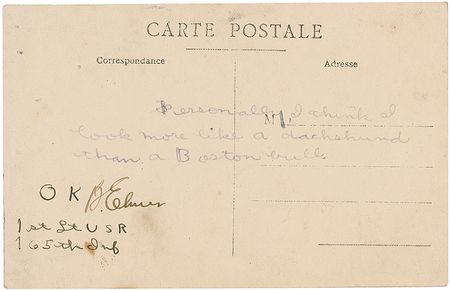 CARTE POSTALE
Correspondance
Adresse
M
Personally, I think I
look more like a dachshund
than a Boston bull.
O K B. Elmer
1st Lt U S R
165th Inf